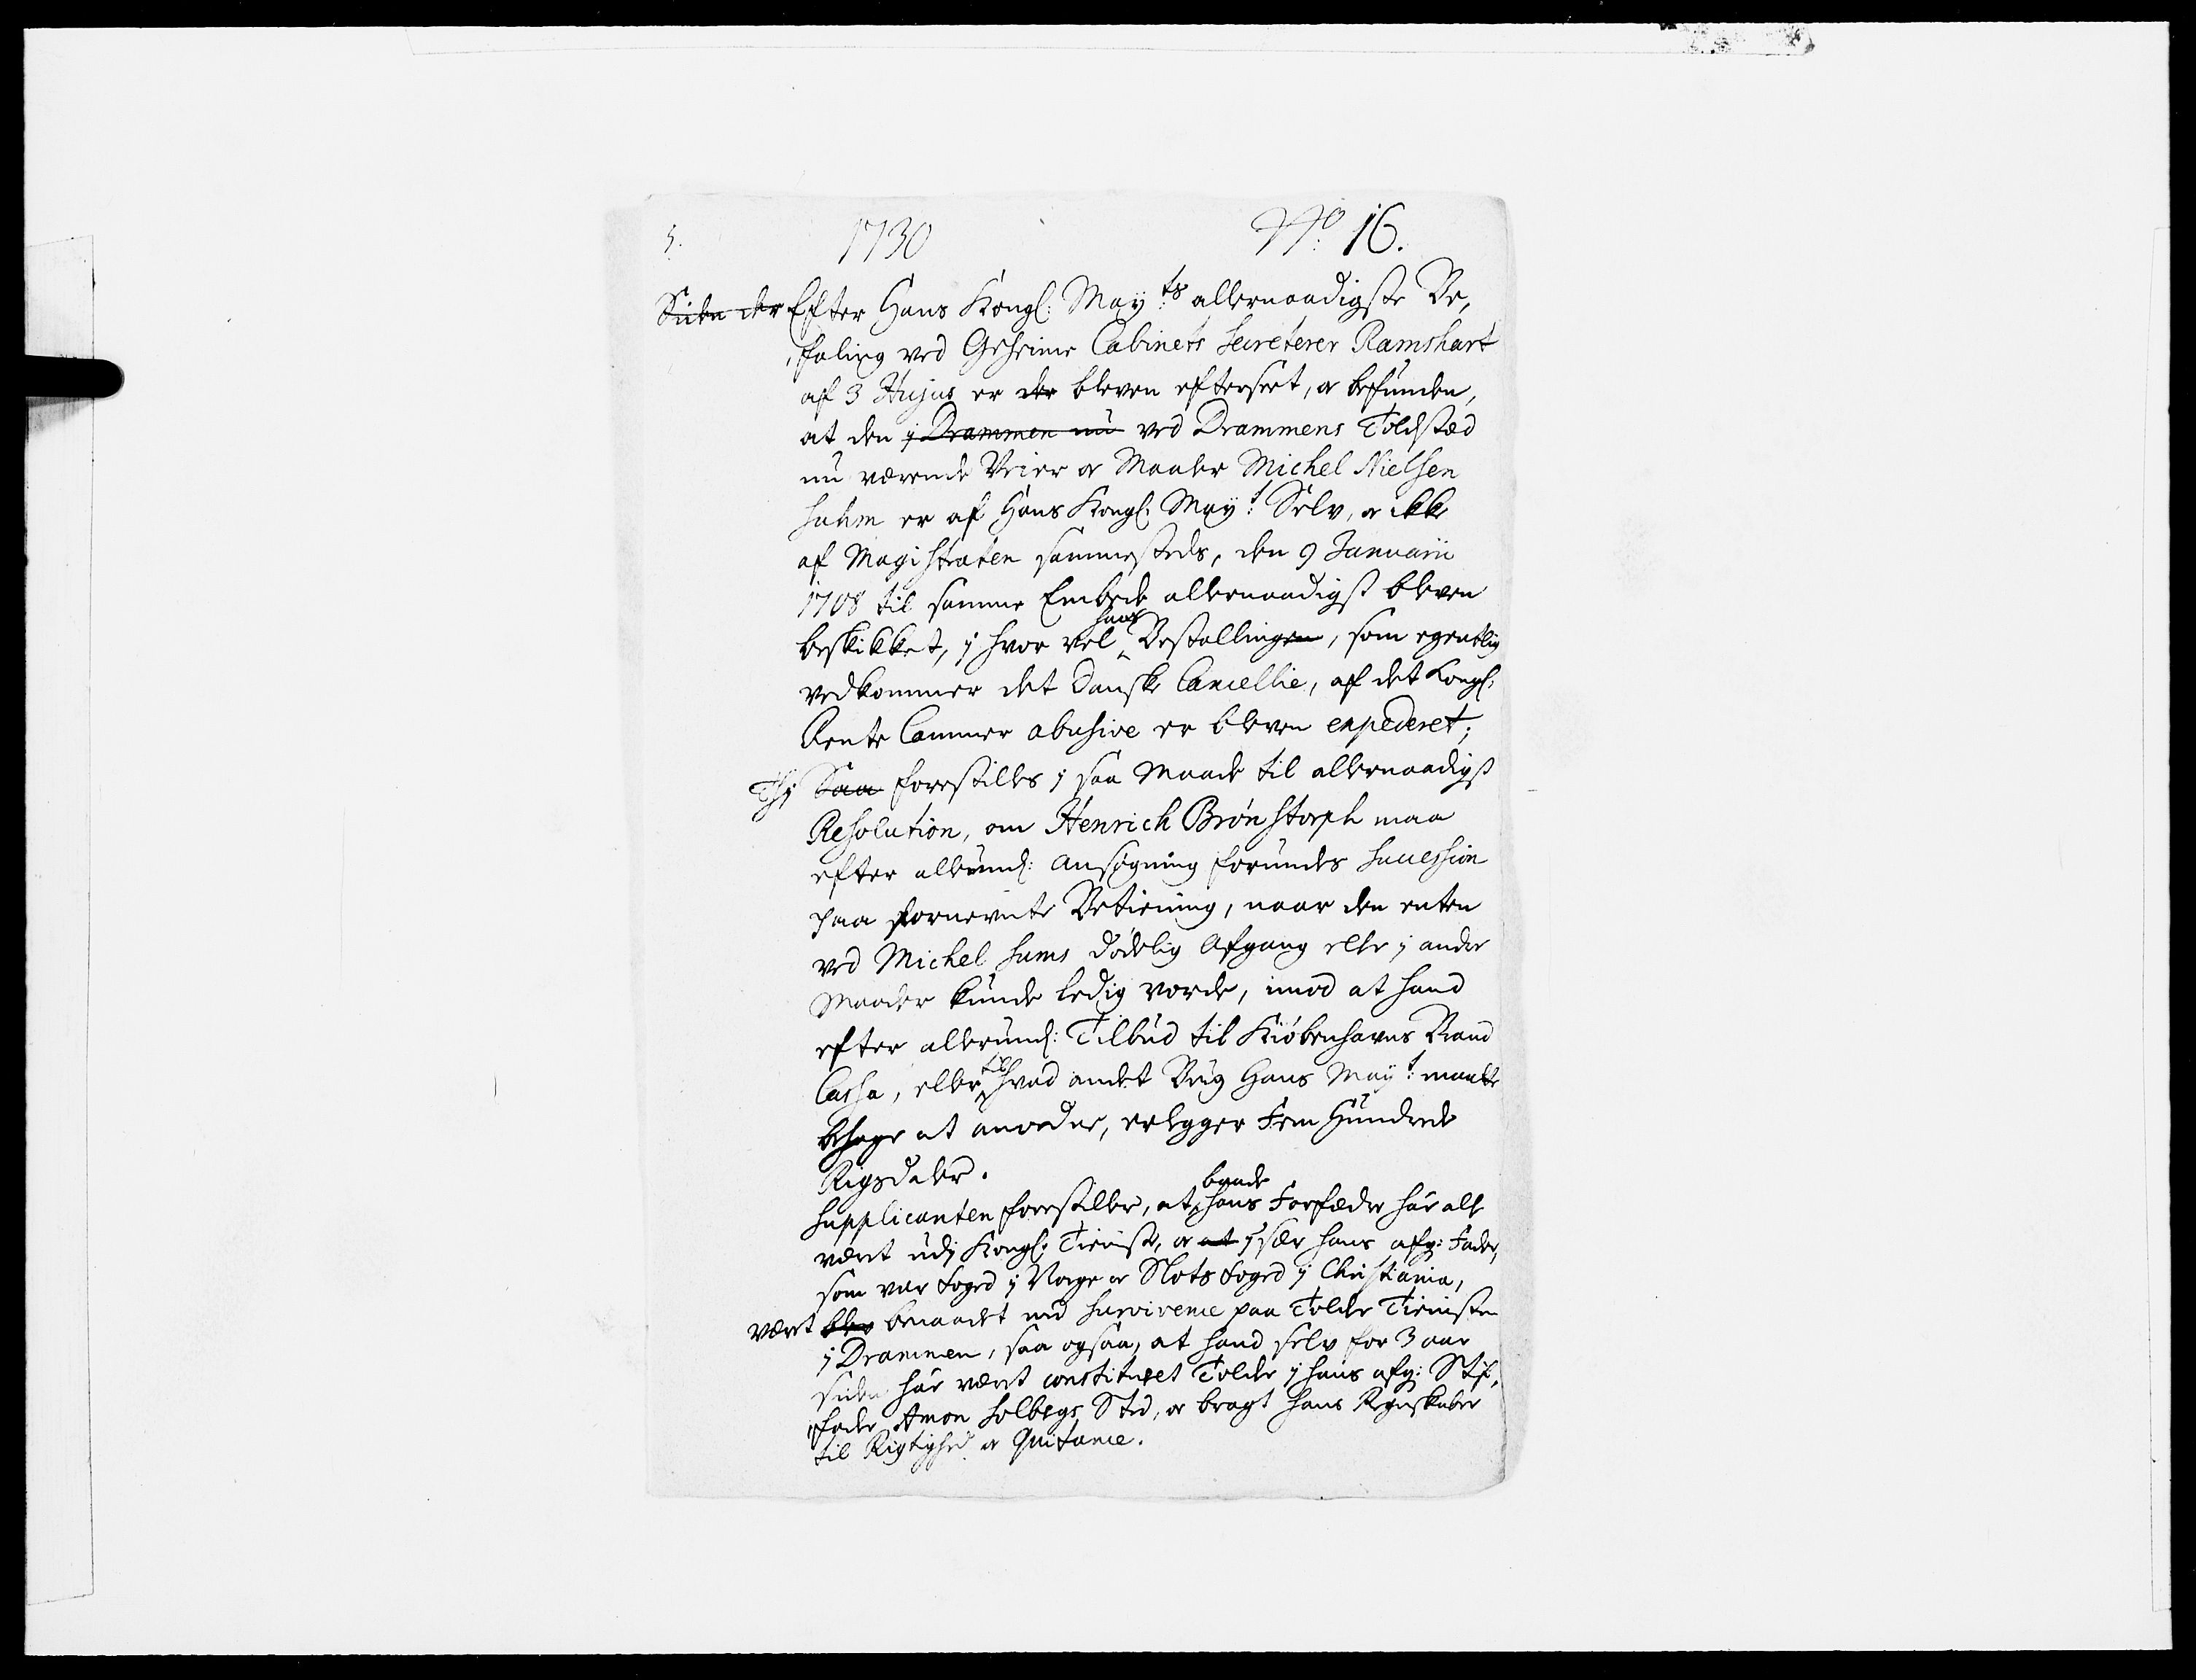 5. 1730 No: 16.
Siden der Efter Hans Kongl: May:ts allernaadigste Be,
,faling ved Geheime Cabinets Secreterer Ramshart
af 3 Hujus er der bleven efterseet, og befunden,
at den i Drammen nu ved Drammens Toldsted
nu værende Veier og Maaler Michel Nielsen
Suhm er af Hans Kongl: May:t Selv, og ikke
af Magistraten sammesteds, den 9 Januarii
1708 til samme Embede allernaadigst bleven
beskikket, i hvor vel hans Bestallingen, som egentlig
vedkommer det Danske Cancellie, af det Kongl:
Rente Cammer abusive er bleven expederet;
Thi Saa forestilles i saa Maade til allernaadigst
Resolution, om Henrich Brønstorph maa
efter allerund: Ansøgning forundes Succession
paa fornevnte Betiening, naar den enten
ved Michel Sums dødelig Afgang eller i andre
Maader kunde ledig vorde, imod at hand
efter allerund: Tilbud til Kiøbenhavns Brand
Cassa, eller til hvad andet Brug Hans May:t maatte
behage at anordne, erlegger Fem Hundrede
Rigsdaler.
Supplicanten forestiller, at baade hans Forfædre har alle
været udi Kongl: Tieniste, og at i sær hans afg: Fader,
som var Foged i Norge og Slots Foged i Christiania,
været blev benaadet med Survivence paa Tolder Tienisten
i Drammen, saa ogsaa, at hand selv for 3 aar
siden har været constitueret Tolder i hans afg: Stif,
,fader Amon Solbergs Sted, og bragt hans Regnskaber
til Rigtighed og Quitance.